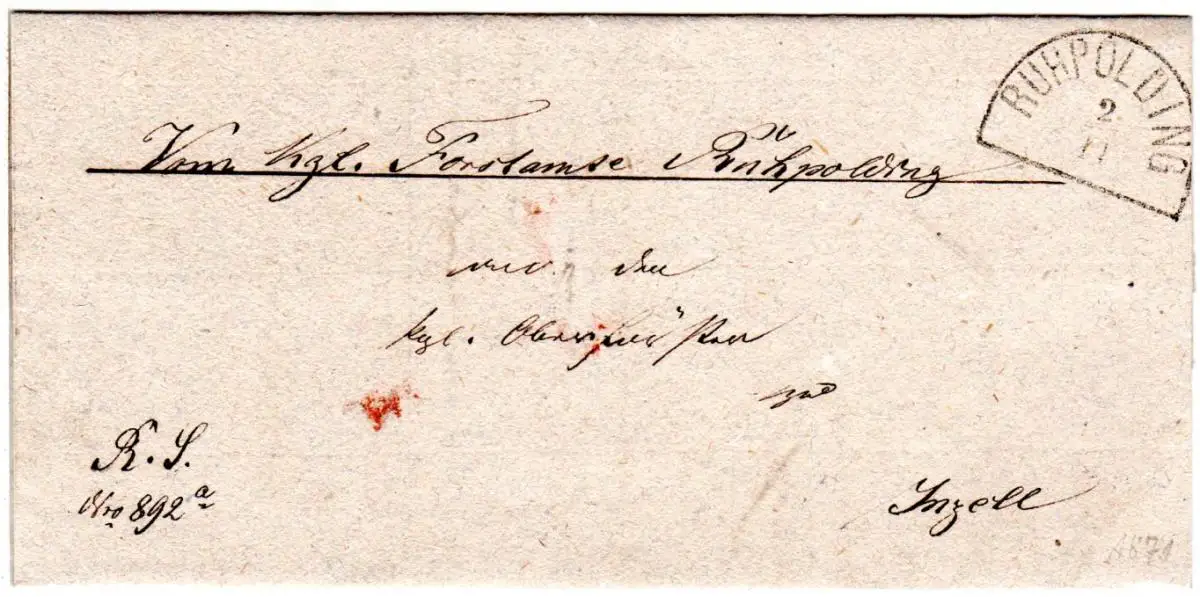 RUHPOLDING
2
11
Vom Kgl. Forstamte Ruhpolding
an den
kgl. Oberförster
zu
Inzell
R. S.
Nro 892 a
1871